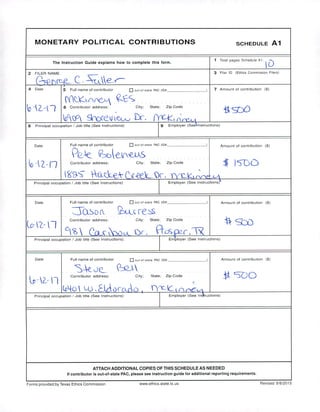 MONETARY POLITICAL CONTRIBUTIONS SCHEDULE A1
The Instruction Guide explains how to complete this form.
1 Total pages Schedule A1:
10
2 FILER NAME
George C. Fuller
3 Filer ID (Ethics Commission Filers)
4 Date
5 Full name of contributor out-of-state PAC (ID#:
7 Amount of contribution ($)
McKinney RES
6-12-17
6 Contributor address; City; State; Zip Code
$500
Shoreview Dr. McKinney
8 Principal occupation / Job title (See Instructions)
9 Employer (See Instructions)
Date
Full name of contributor out-of-state PAC (ID#:
Amount of contribution ($)
Pete
6-12-17
Contributor address; City; State; Zip Code
$ 1500
1895 Hacket Creek Dr. McKinney
Principal occupation / Job title (See Instructions)
Employer (See Instructions)
Date
Full name of contributor out-of-state PAC (ID#:
Amount of contribution ($)
Jason Burress
6-12-17
Contributor address; City; State; Zip Code
$500
981 Caribou Dr. Prosper, TX
Principal occupation / Job title (See Instructions)
Employer (See Instructions)
Date
Full name of contributor out-of-state PAC (ID#:
Amount of contribution ($)
Steve Bell
6-12-17
Contributor address; City; State; Zip Code
$500
6401 W. Eldorado, McKinney
Principal occupation / Job title (See Instructions)
Employer (See Instructions)
ATTACH ADDITIONAL COPIES OF THIS SCHEDULE AS NEEDED
If contributor is out-of-state PAC, please see instruction guide for additional reporting requirements.
Forms provided by Texas Ethics Commission www.ethics.state.tx.us Revised 9/8/2015